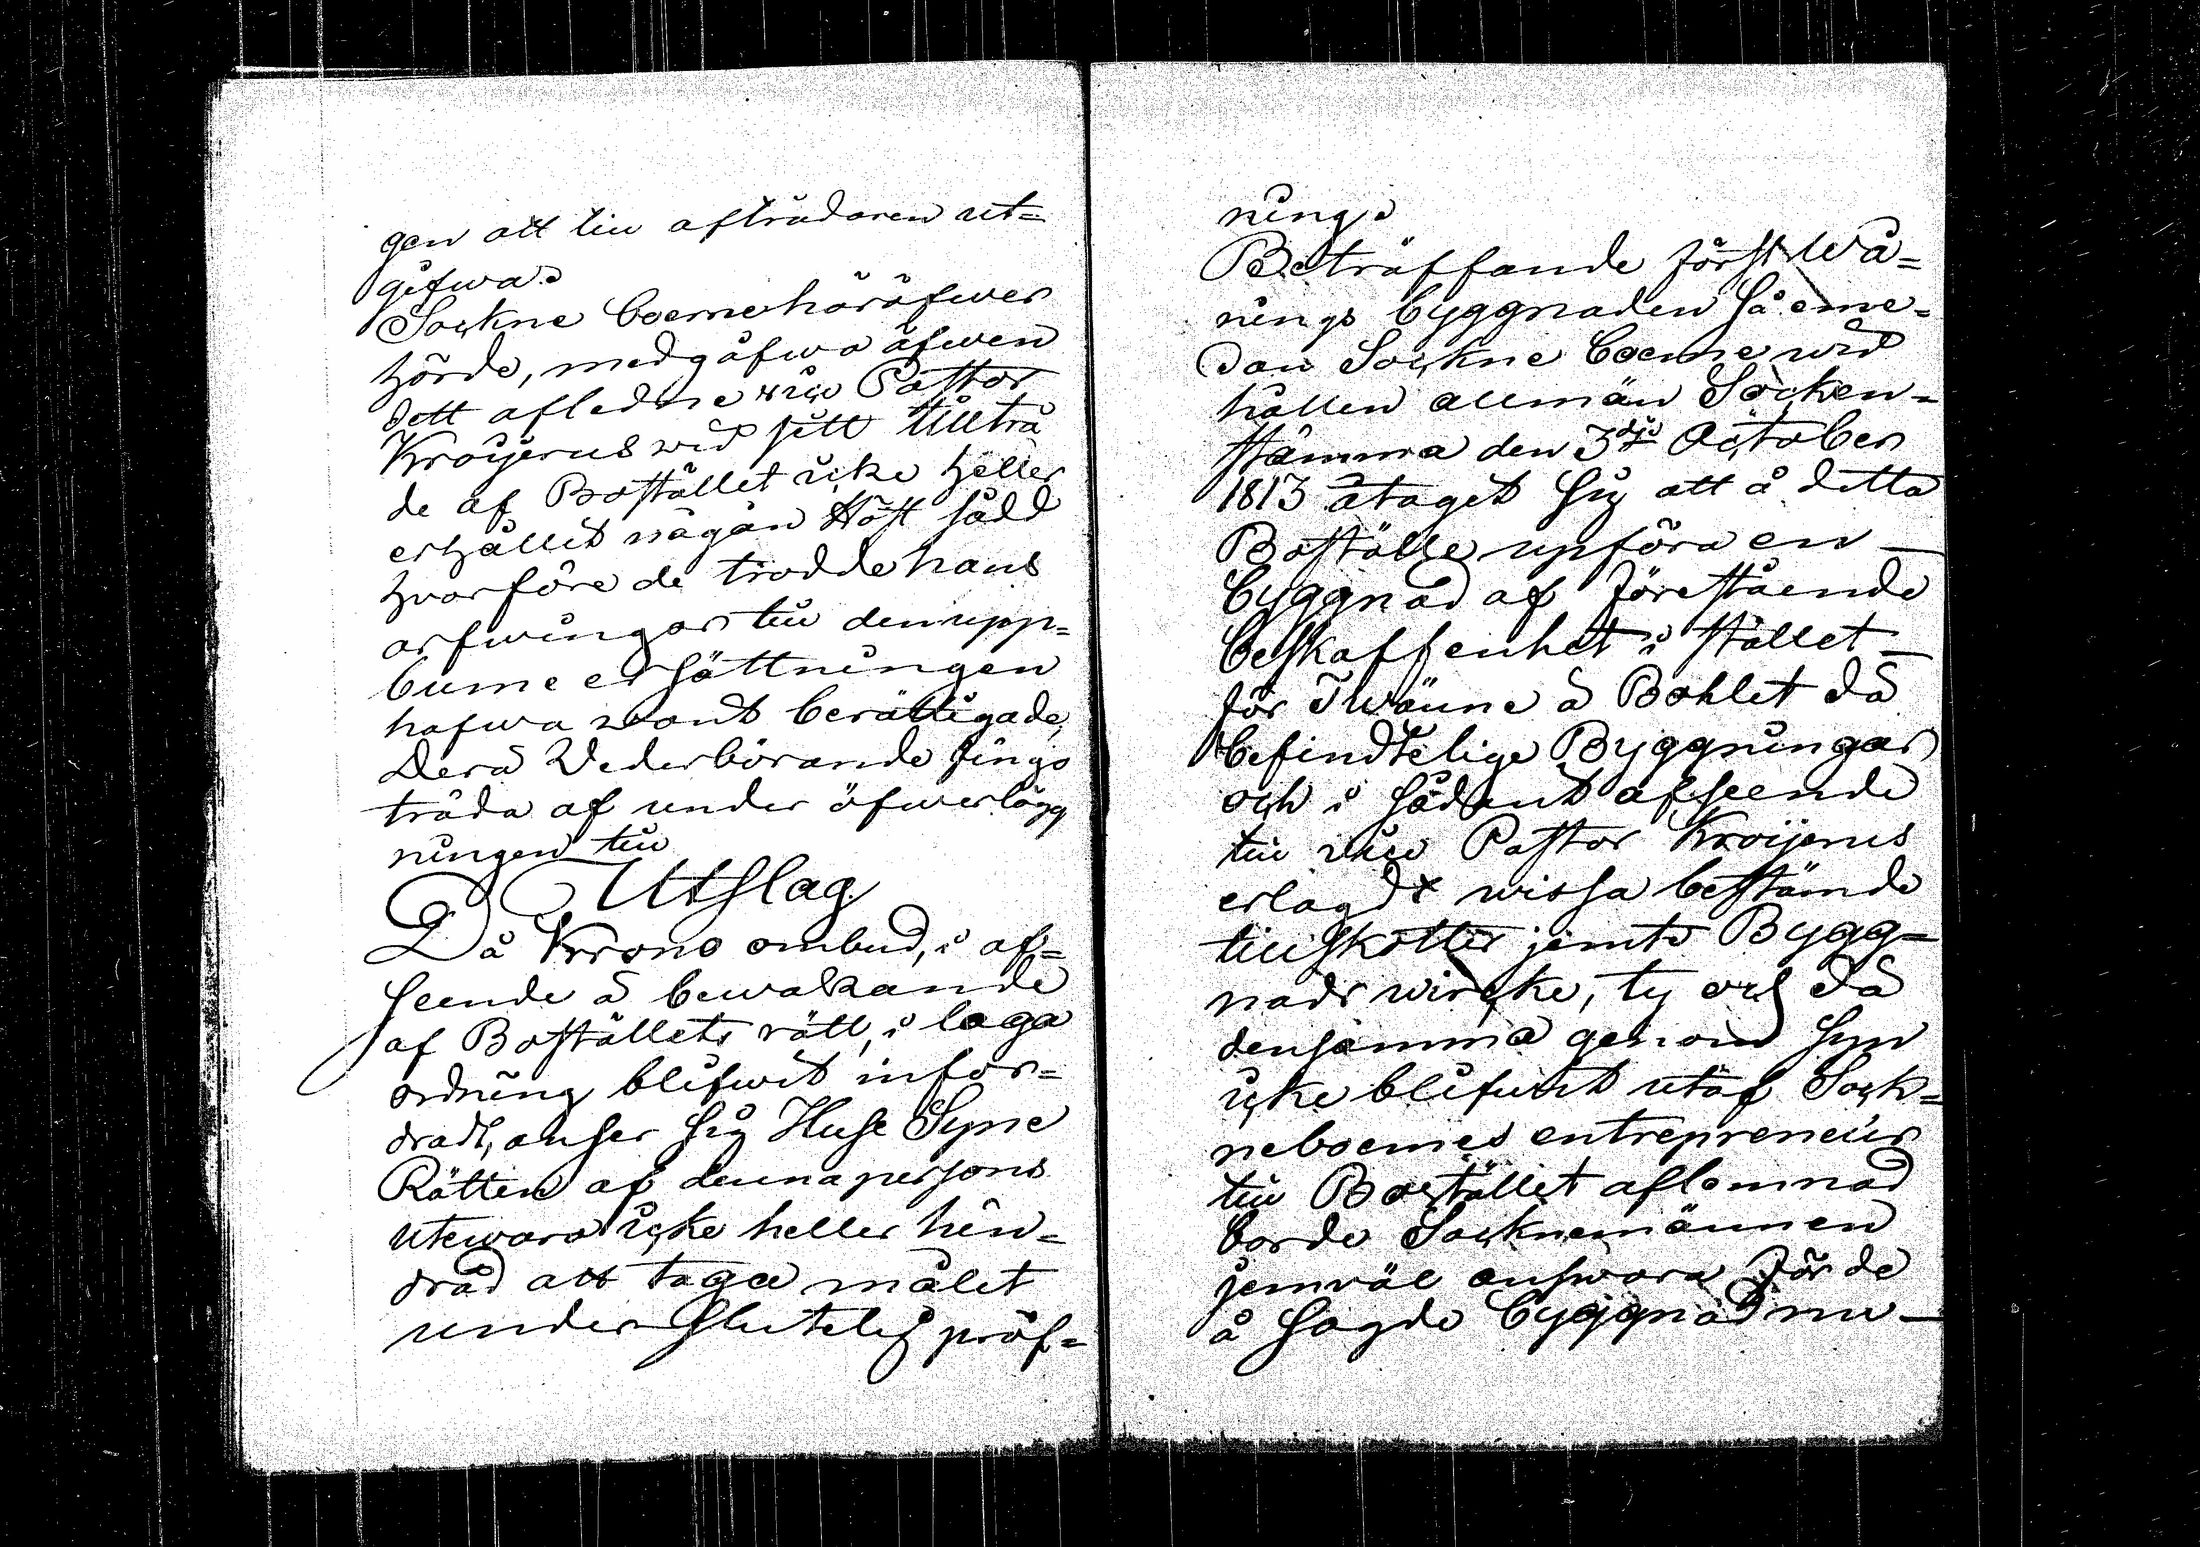 gen att till afträdaren ut=
gifwas
Sockne boerne häröfwer
hörde, medgåfwo äfwen
dett aflednе vice Pastor
Kroijerus wid sitt tillträ
de af Bostället icke heller
erhållit någån Höst sådd
hvarföre de trodde hans
arfwingar till den upp=
burne ersättningen
hafwa wont berättigade,
Dera Vederbörande fingo
träda af under öfwerlägg
ningen till
Utslag
Då Krono ombud, i af=
seende å bewakande
af Boställets rätt, i laga
ordning blifwit infor=
dradt, anser sig Huse Syne
Rätten af denna persons
utewaro icke heller hin=
drad att taga målet
under slutelig pröf=
ning.
Beträffande först Wå=
nings byggnaden så eme=
dan Sockne boerne wid
hållen allmän Socken=
stämma den 3dje October
1813 åtaget sig att å detta
Boställe upföra en
byggnad af förestående
beskaffenhet i stället
för Twänne å Bohlet då
befindtelige Byggningar
och i sådant afseende
till vice Pastor Kroijerus
erlagdt wissa bestämde
tillskotter jemte Bygg=
nads wircke, ty och då
densamma genom syn
icke blifwit utaf Sock=
neboernes entrepreneur
till Bostället aflemnad
borde Socknemännen
jemväl answara för de
å sagde byggnad nu